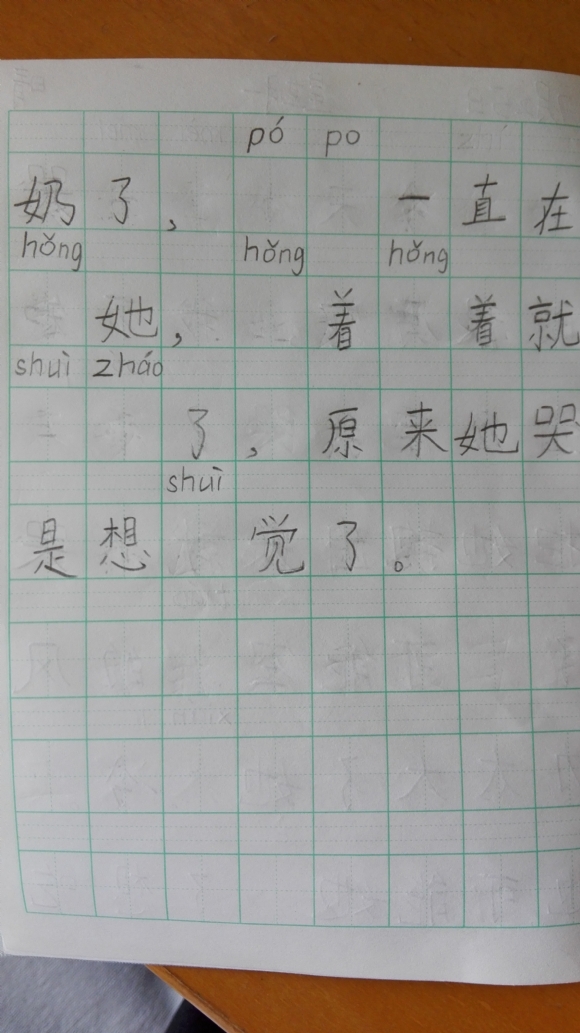 pó po
奶了， 一直在
hǒng hǒng hǒng
她， 着 着就
shuì zháo
了，原来她哭
shuì
是想 觉了。